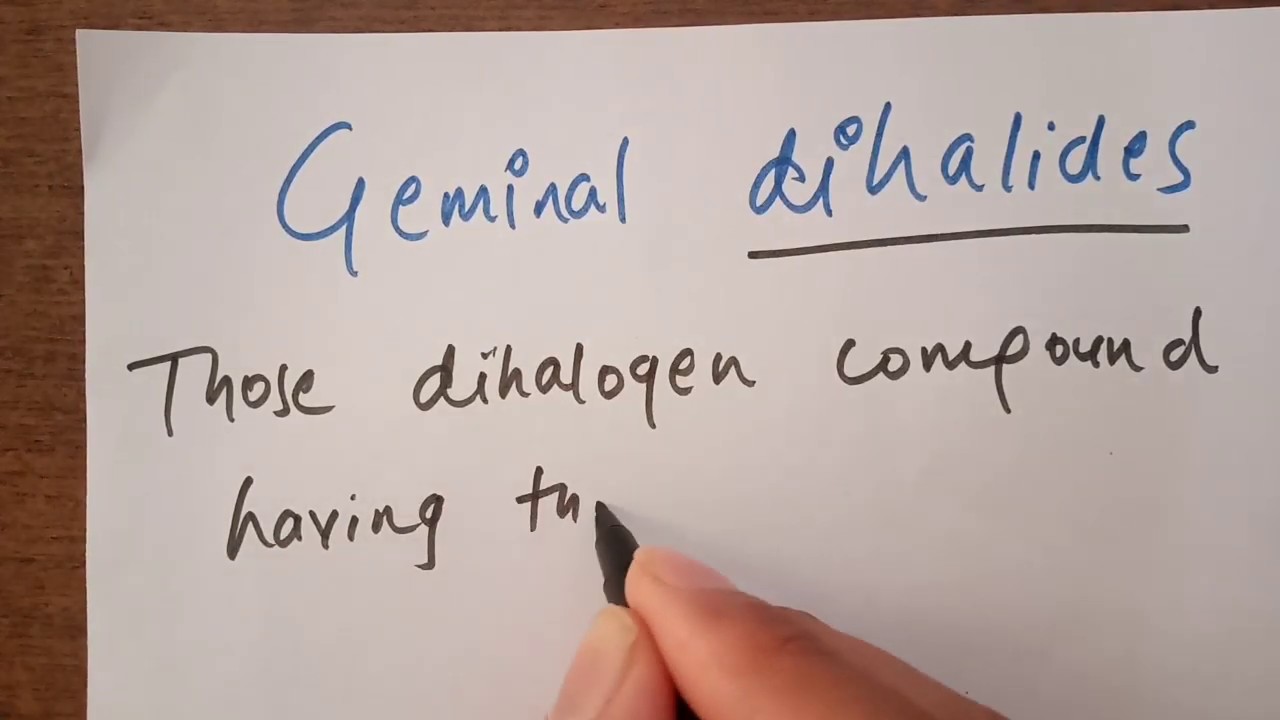 Geminal dihalides
Those dihalogen compound
having th